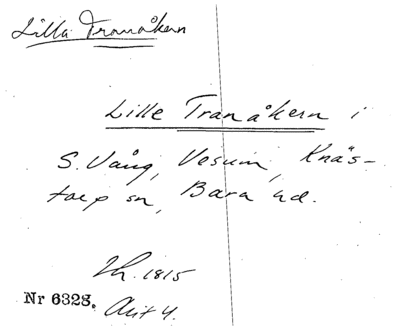 Lilla Tranåkern
Lille Tranåkern i
S. Vång, Vesum, Knäs-
torp sn, Bara hd.
Lh. 1815
Nr 6328. Akt 4.